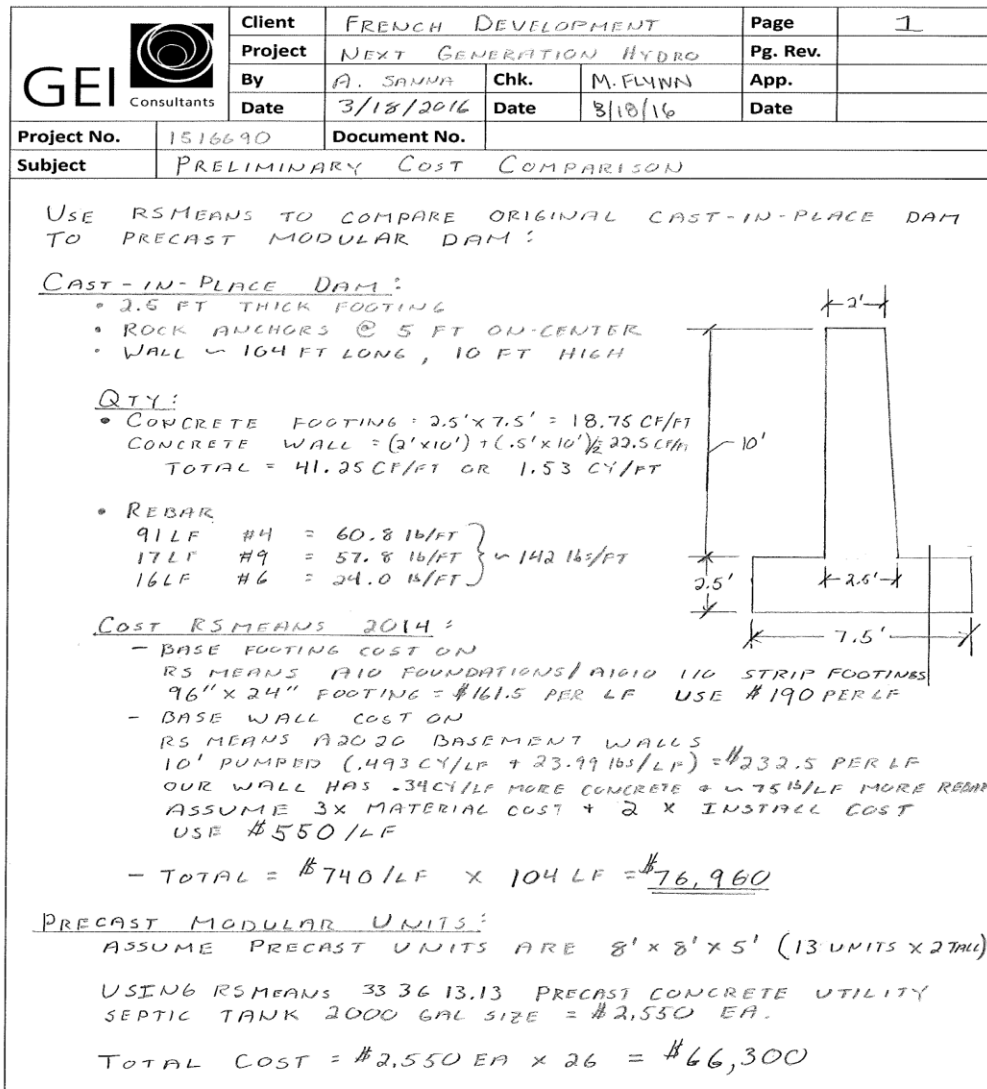 GEI Consultants
Client FRENCH DEVELOPMENT Page 1
Project NEXT GENERATION HYDRO Pg. Rev.
By A. SANNA Chk. M. FLYNN App.
Date 3/18/2016 Date 3/18/16 Date
Project No. 1516690 Document No.
Subject PRELIMINARY COST COMPARISON
USE RSMEANS TO COMPARE ORIGINAL CAST-IN-PLACE DAM
TO PRECAST MODULAR DAM:
CAST-IN-PLACE DAM:
• 2.5 FT THICK FOOTING
• ROCK ANCHORS @ 5 FT ON-CENTER
• WALL ~ 104 FT LONG, 10 FT HIGH
QTY:
• CONCRETE FOOTING = 2.5' x 7.5' = 18.75 CF/FT
CONCRETE WALL = (2'x10') + (.5'x10')½ 22.5 CF/FT
TOTAL = 41.25 CF/FT OR 1.53 CY/FT
• REBAR
91 LF #4 = 60.8 lb/FT
17 LF #9 = 57.8 lb/FT } ~ 142 lbs/FT
16 LF #6 = 24.0 lb/FT
2'
10'
2.5'
2.5'
7.5'
COST RSMEANS 2014:
- BASE FOOTING COST ON
RS MEANS A10 FOUNDATIONS/A1010 110 STRIP FOOTINGS
96" x 24" FOOTING = $161.5 PER LF USE $190 PER LF
- BASE WALL COST ON
RS MEANS A2020 BASEMENT WALLS
10' PUMPED (.493 CY/LF + 23.99 lbs/LF) = $232.5 PER LF
OUR WALL HAS .34 CY/LF MORE CONCRETE + ~ 75 lb/LF MORE REBAR
ASSUME 3X MATERIAL COST + 2 X INSTALL COST
USE $550/LF
- TOTAL = $740/LF X 104 LF = $76,960
PRECAST MODULAR UNITS:
ASSUME PRECAST UNITS ARE 8' x 8' x 5' (13 UNITS X 2 TALL)
USING RSMEANS 33 36 13.13 PRECAST CONCRETE UTILITY
SEPTIC TANK 2000 GAL SIZE = $2,550 EA.
TOTAL COST = $2,550 EA x 26 = $66,300